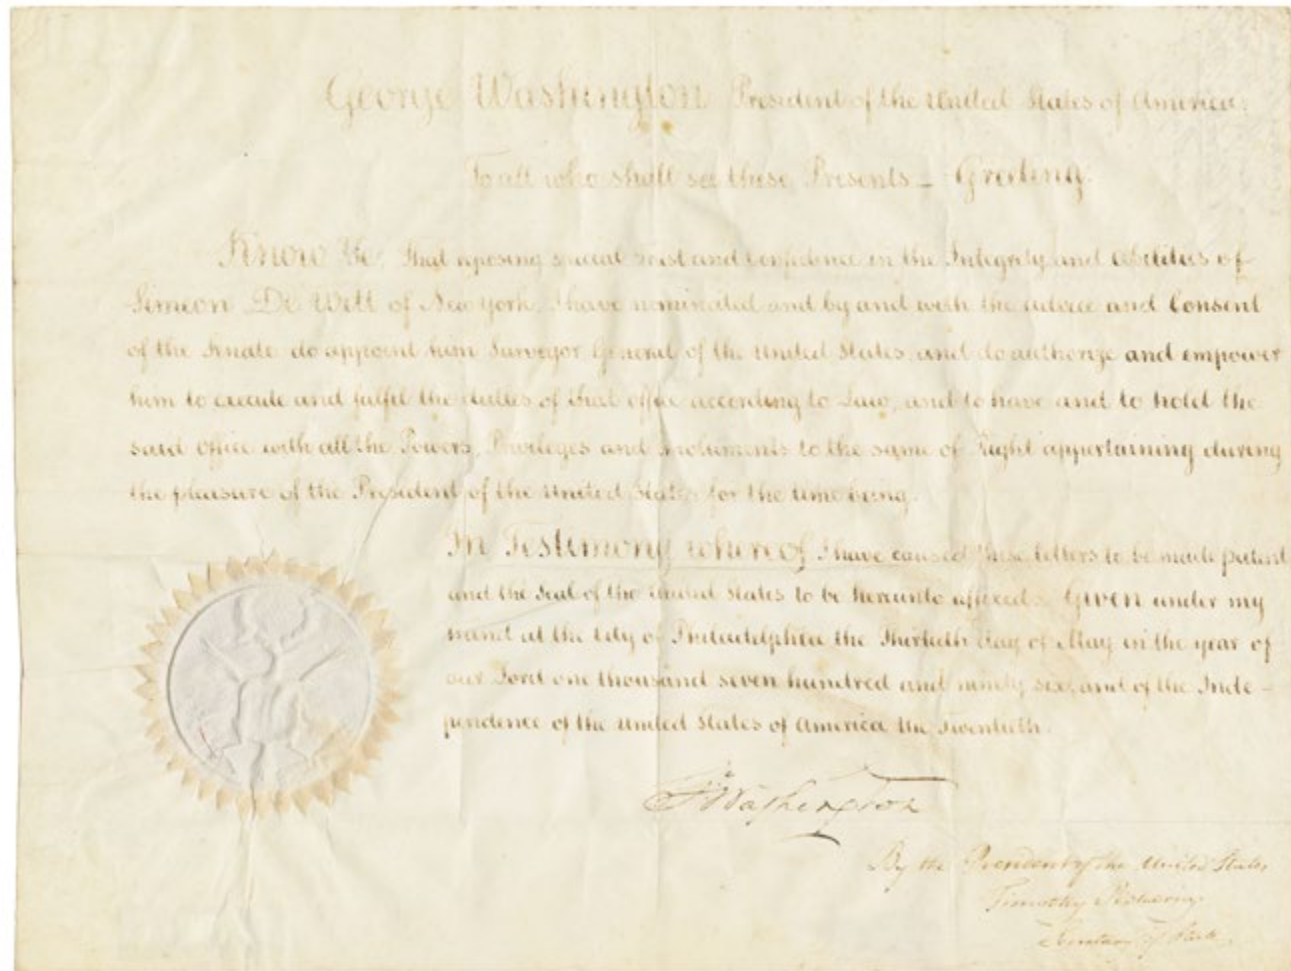 George Washington President of the United States of America.
To all who shall see these Presents – Greeting.
Know Ye, That reposing special Trust and Confidence in the Integrity and Abilities of
Simeon De Witt of New York, I have nominated and by and with the advice and Consent
of the Senate do appoint him Surveyor General of the United States, and do authorize and empower
him to execute and fulfil the duties of that office according to Law, and to have and to hold the
said Office with all the Powers, Privileges and Emoluments to the same of Right appertaining during
the pleasure of the President of the United States for the time being.
In Testimony whereof I have caused these Letters to be made patent
and the Seal of the United States to be hereunto affixed. Given under my
hand at the City of Philadelphia the Thirtieth day of May in the year of
our Lord one thousand seven hundred and ninety six, and of the Inde-
pendence of the United States of America the Twentieth.
G Washington
By the President of the United States
Timothy Pickering
Secretary of State